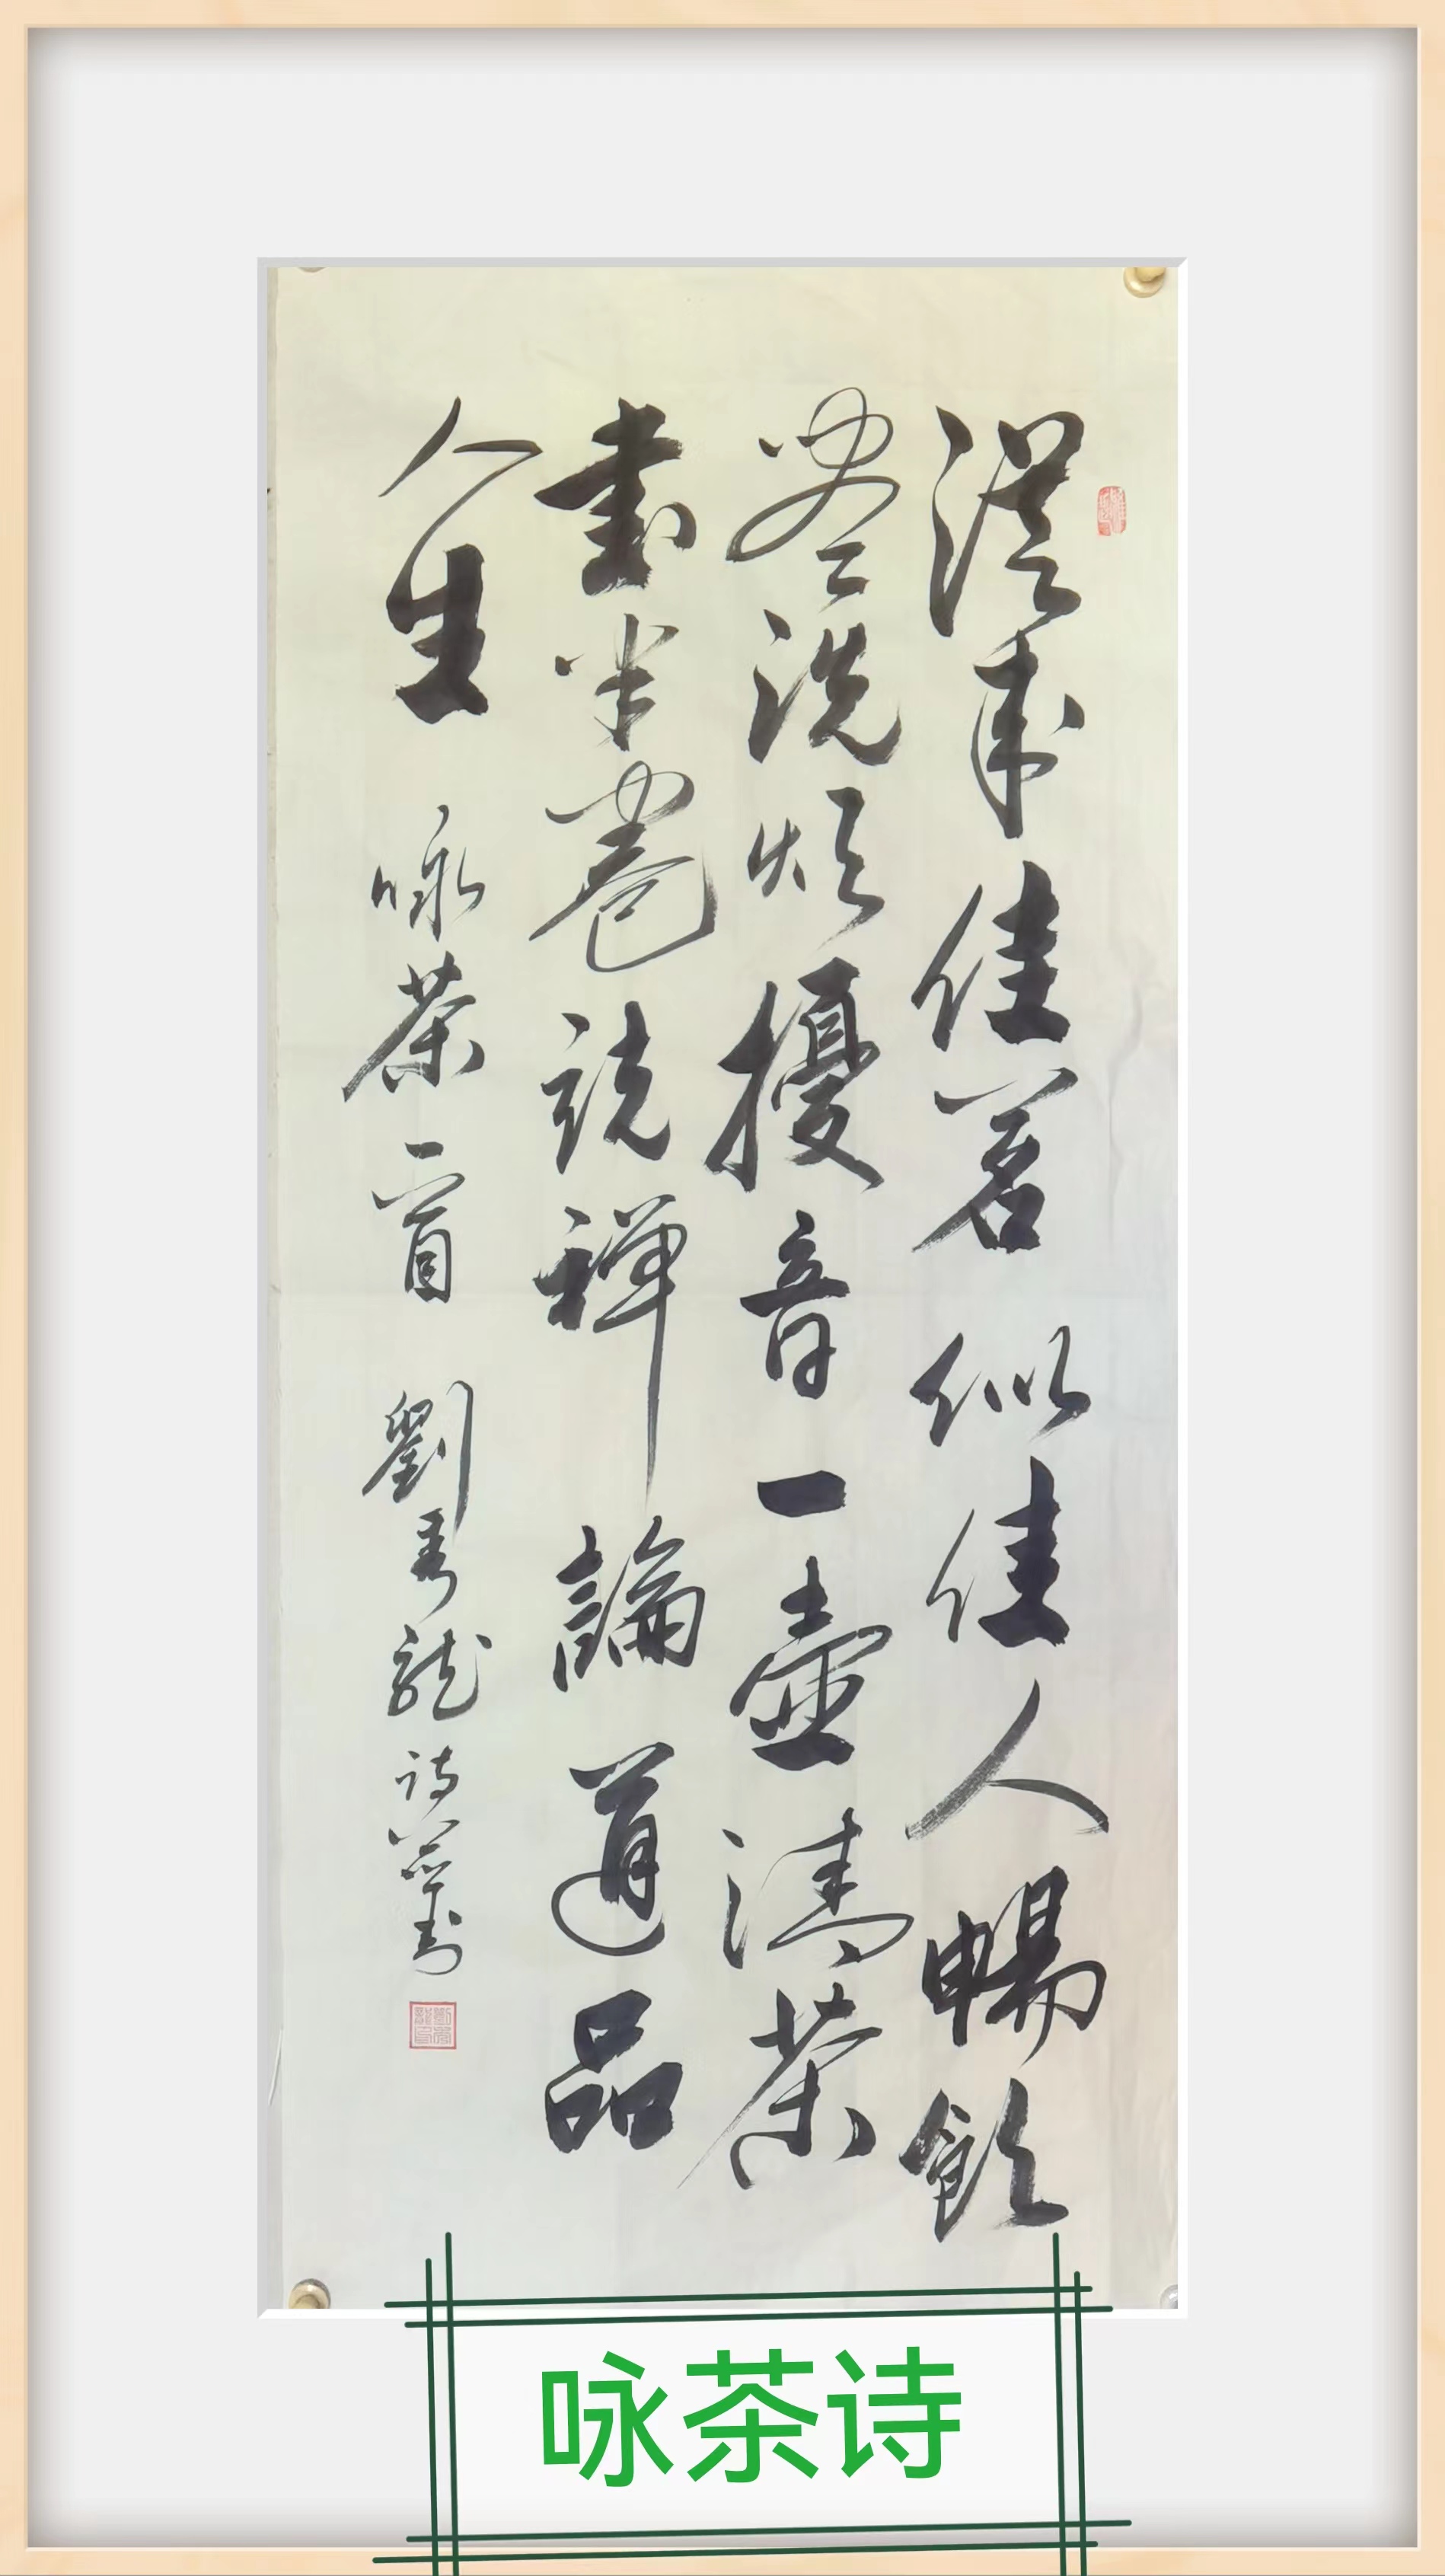 從来佳茗似佳人暢飲
盡洗煩擾音一壶清茶
書半卷說禪論道品
人生 咏茶一首 劉秀龍诗并書
咏茶诗